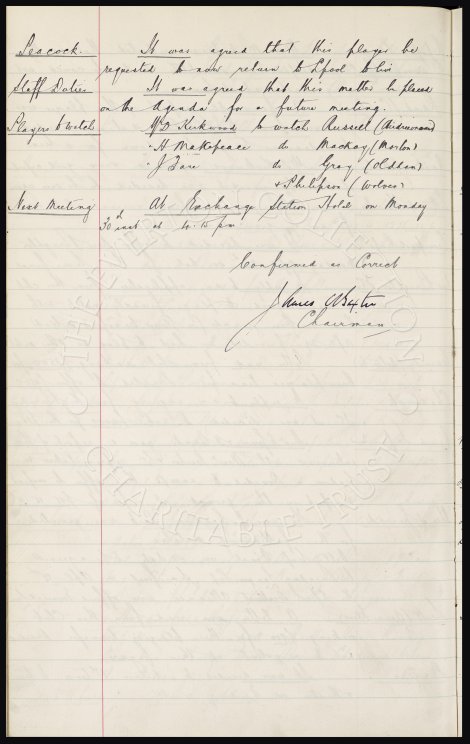 Peacock. It was agreed that this player be
requested to now return to L'pool to live
Staff Duties It was agreed that this matter be placed
on the Agenda for a future meeting.
Players to watch Mr D Kirkwood to watch Russell (Airdrieonians)
" H Makepeace do Mackay (Morton)
" J Fare do Gray (Oldham)
& Philipson (Wolves)
Next Meeting At Exchange Station Hotel on Monday
30th inst at 4.15 pm
Confirmed as Correct
James C Baxter
Chairman.
THE EVERTON COLLECTION
CHARITABLE TRUST